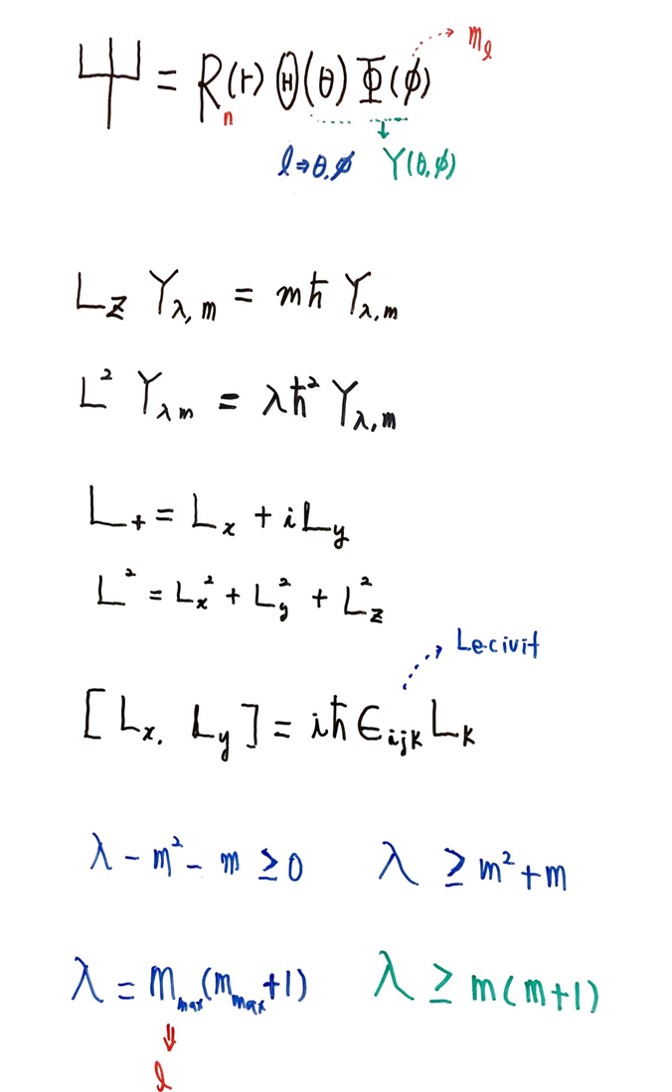 Ψ = R(r) Θ(θ) Φ(ϕ) → m_ℓ
n
ℓ ⇒ θ,ϕ Y(θ,ϕ)
L_z Y_{λ,m} = mħ Y_{λ,m}
L² Y_{λm} = λħ² Y_{λ,m}
L₊ = L_x + iL_y
L² = L_x² + L_y² + L_z²
Lecivit
[L_x, L_y] = iħ ϵ_{ijk} L_k
λ - m² - m ≥ 0 λ ≥ m² + m
λ = m_{max}(m_{max}+1) λ ≥ m(m+1)
⇓
ℓ